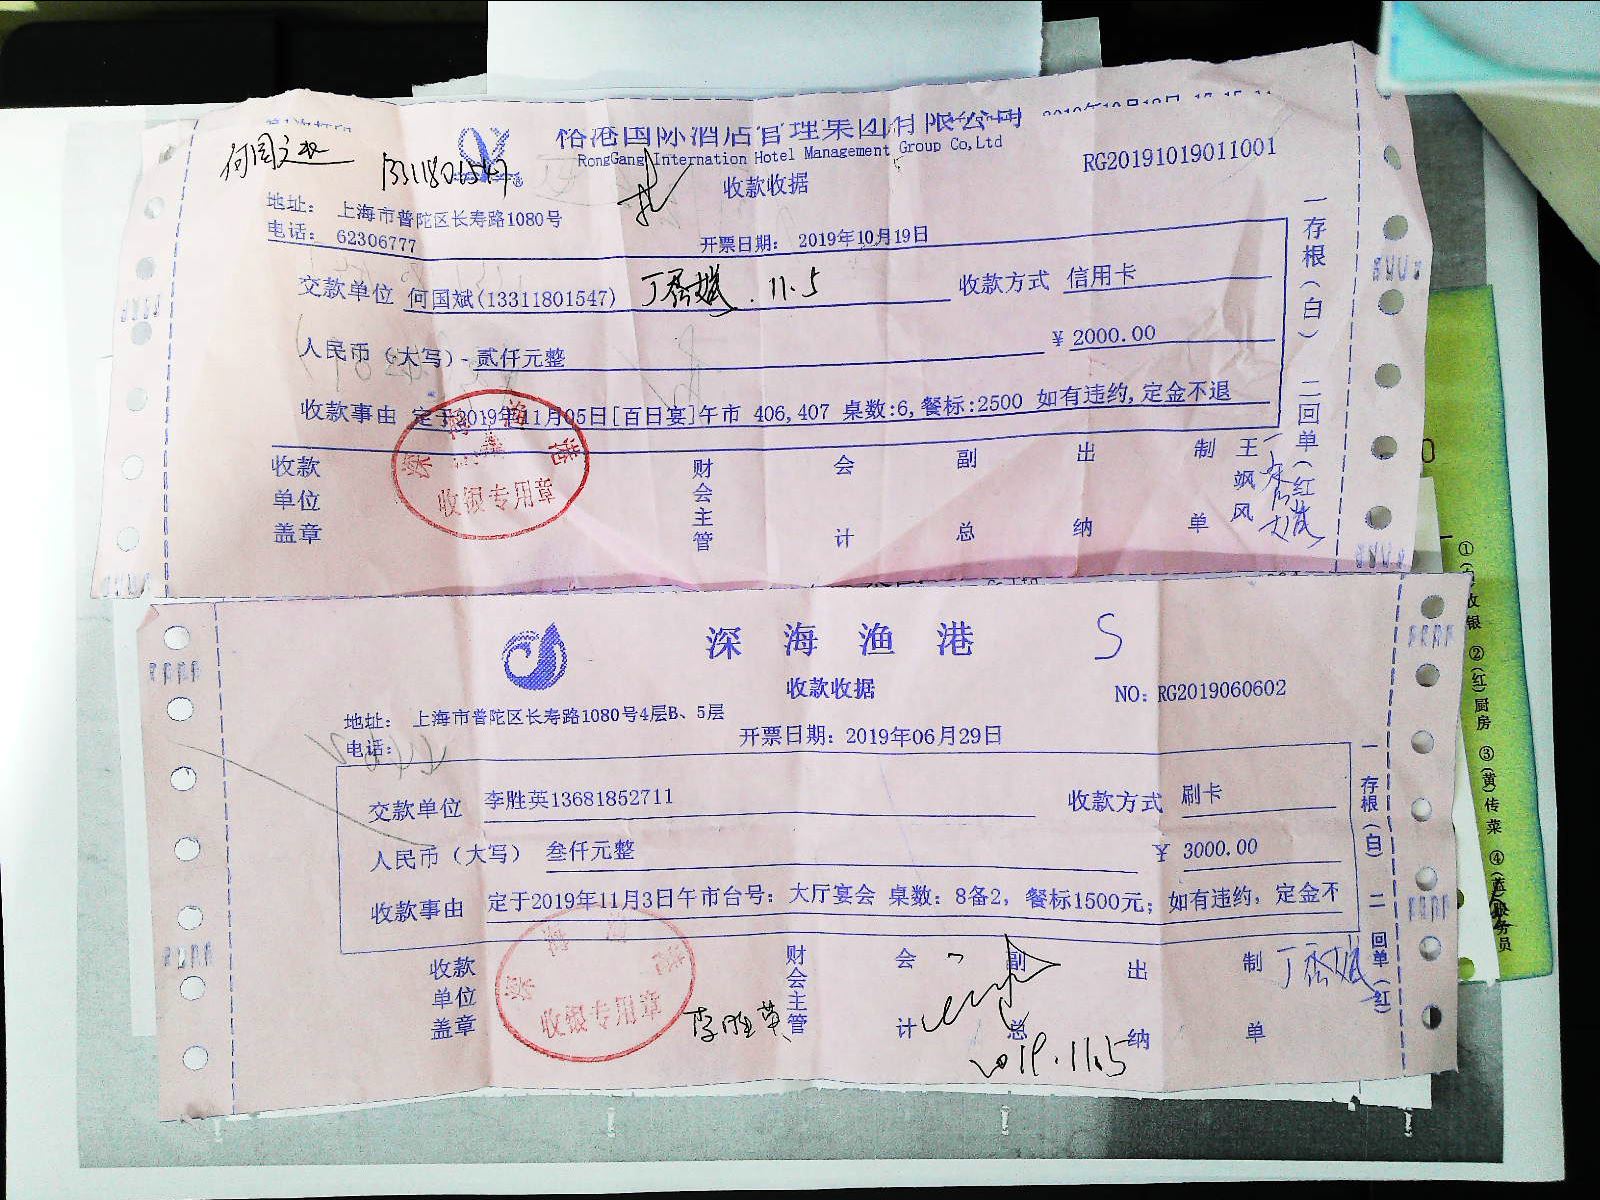 国际酒店管理集团有限公司
RongGang Internation Hotel Management Group Co,Ltd
RG20191019011001
收款收据
13311801547
地址： 上海市普陀区长寿路1080号
电话： 62306777
开票日期： 2019年10月19日
交款单位 何国斌(13311801547) 11.5 收款方式 信用卡
人民币（大写） 贰仟元整 ¥ 2000.00
收款事由 定于2019年11月05日[百日宴]午市 406,407 桌数:6,餐标:2500 如有违约,定金不退
收款单位盖章 财会主管 会计 副总 出纳 制单 王飒风
一存根（白） 二回单（红
深海渔港
收银专用章
深海渔港
S
收款收据
NO: RG2019060602
地址： 上海市普陀区长寿路1080号4层B、5层
电话：
开票日期：2019年06月29日
交款单位 李胜英13681852711 收款方式 刷卡
人民币（大写） 叁仟元整 ¥ 3000.00
收款事由 定于2019年11月3日午市台号：大厅宴会 桌数：8备2，餐标1500元；如有违约，定金不
收款单位盖章 财会主管 会计 副总 出纳 制单
李胜英
2019.11.5
一存根（白） 二回单（红）
收银专用章
收银 ②(红)厨房 ③(黄)传菜 ④